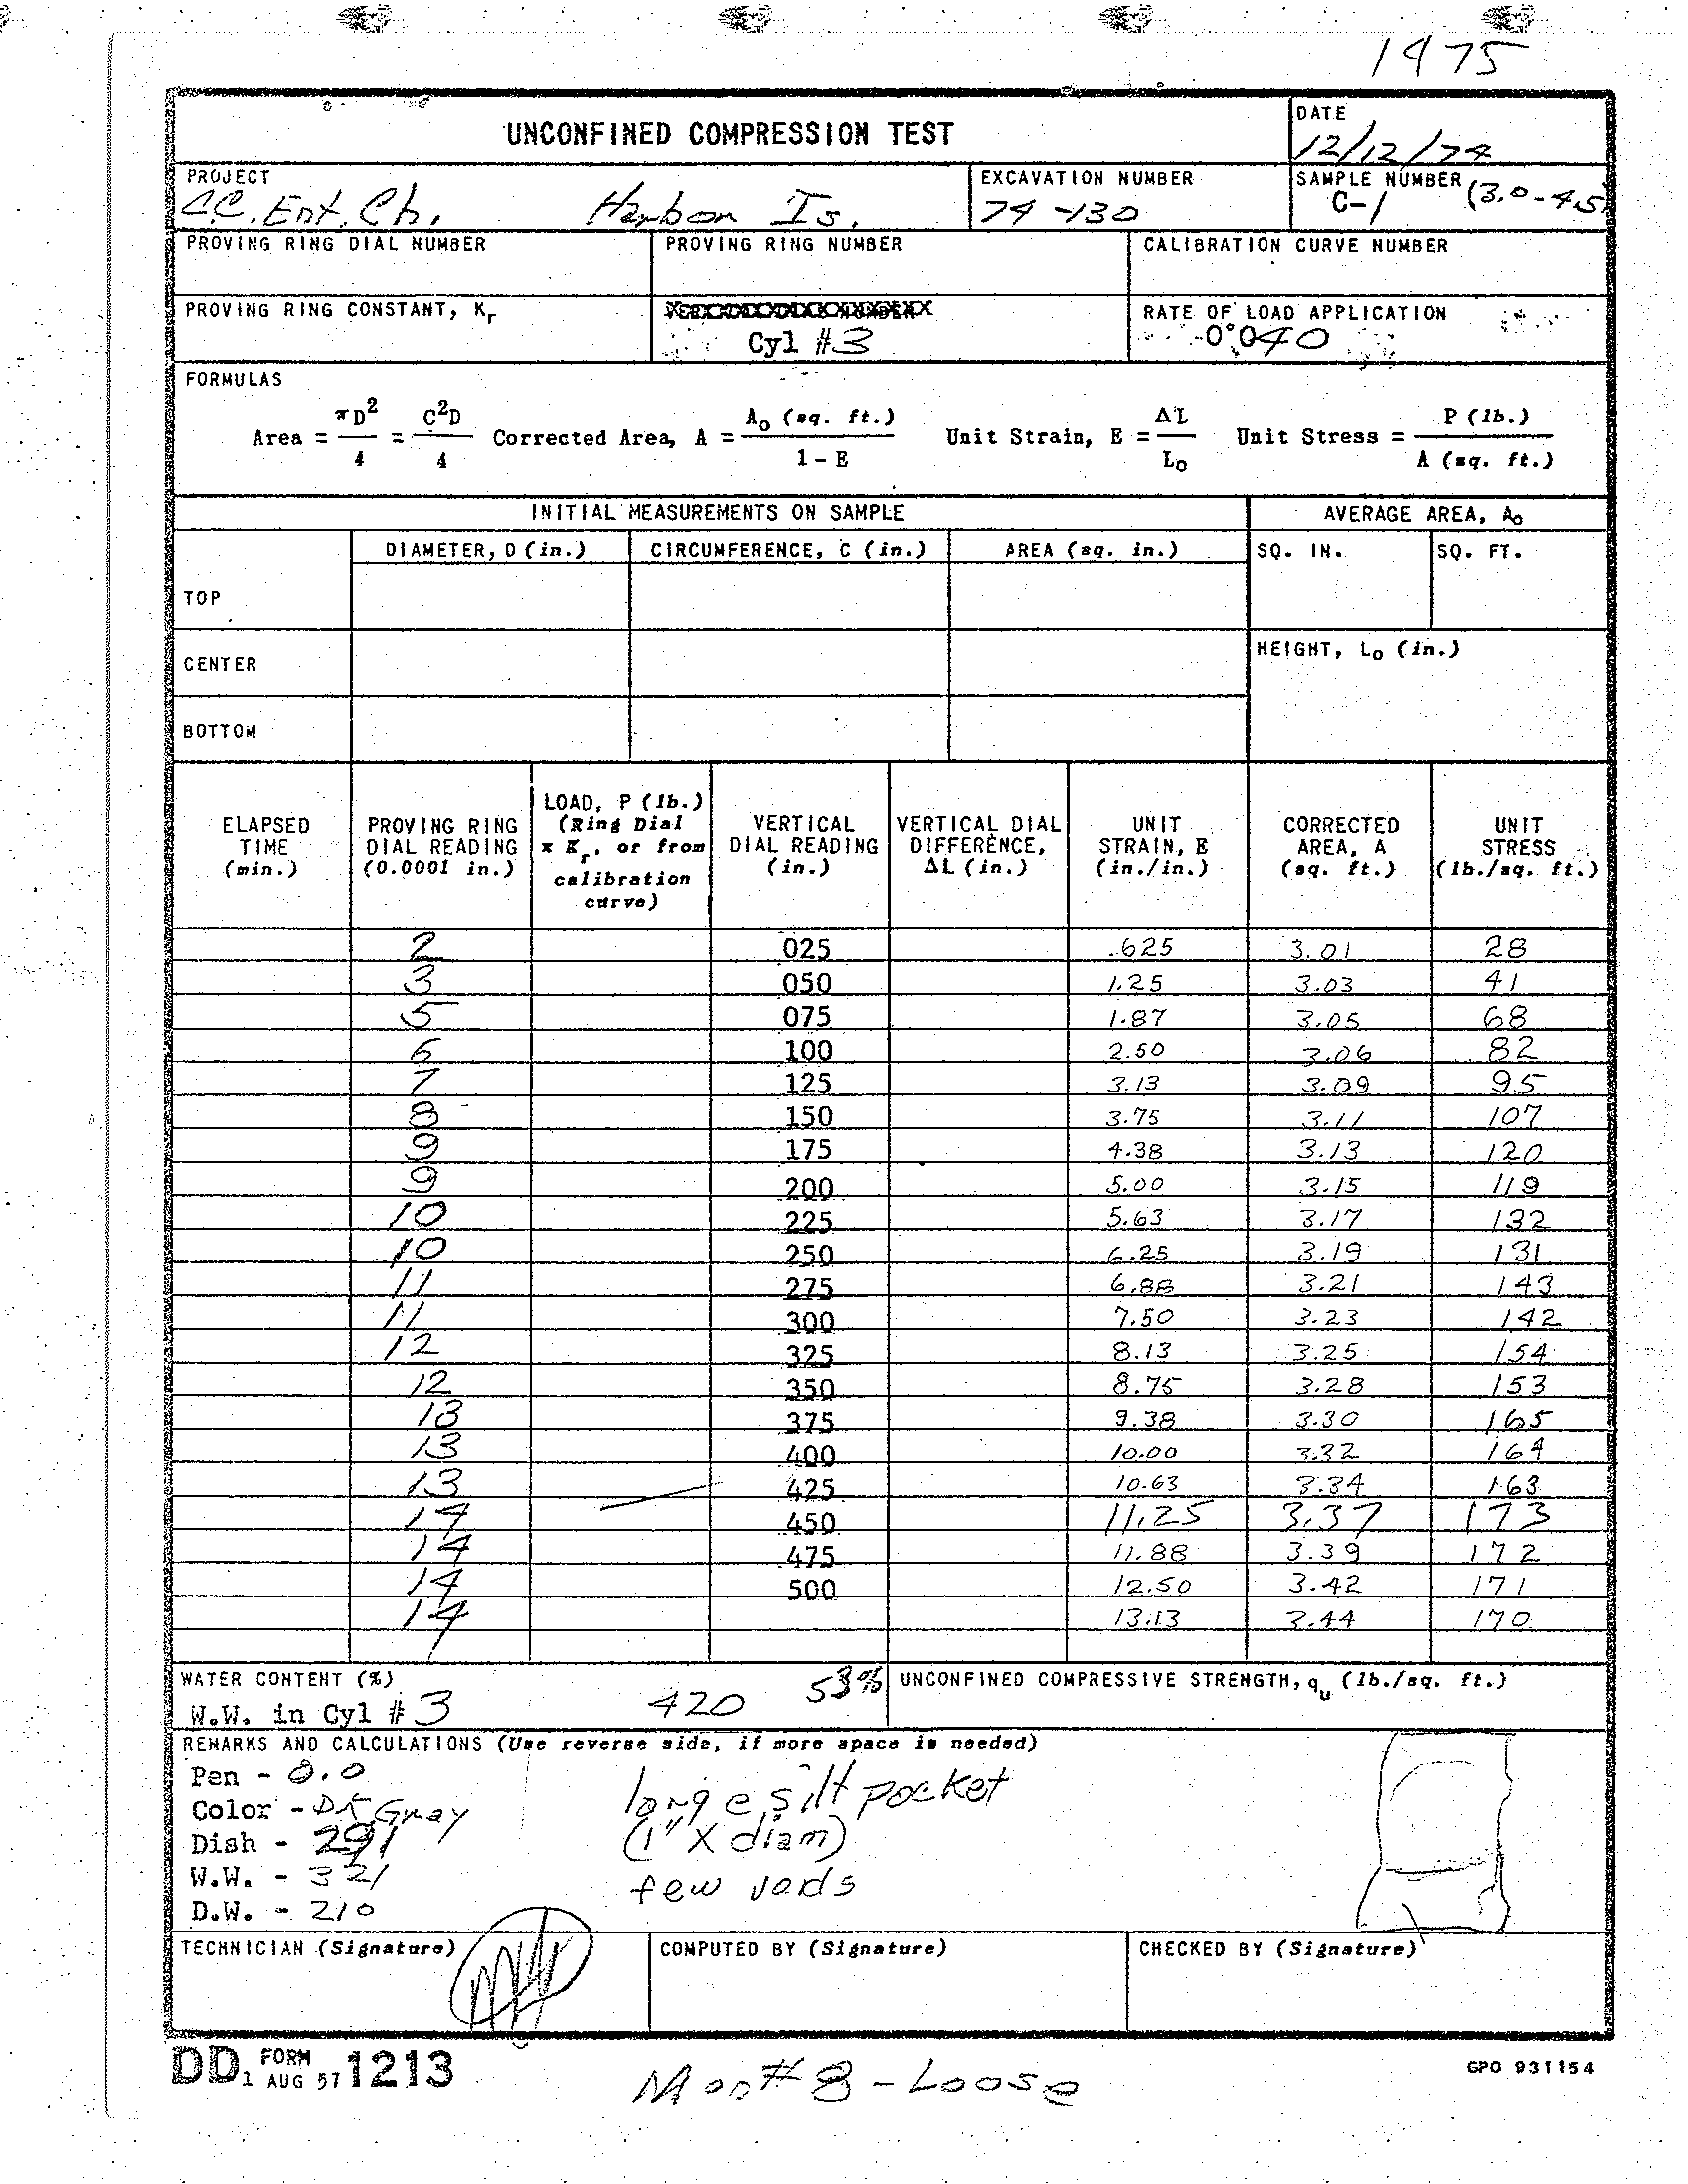 1975
UNCONFINED COMPRESSION TEST
DATE
12/12/74
PROJECT
C.C. Ent. Ch. Harbor Is.
EXCAVATION NUMBER
74-130
SAMPLE NUMBER (3.0-4.5)
C-1
PROVING RING DIAL NUMBER
PROVING RING NUMBER
CALIBRATION CURVE NUMBER
PROVING RING CONSTANT, Kr
Cyl #3
RATE OF LOAD APPLICATION
0.040
FORMULAS
Area = πD²/4 = C²D/4 Corrected Area, A = A₀ (sq. ft.)/1-E Unit Strain, E = ΔL/L₀ Unit Stress = P (lb.)/A (sq. ft.)
INITIAL MEASUREMENTS ON SAMPLE
AVERAGE AREA, A₀
DIAMETER, D (in.) CIRCUMFERENCE, C (in.) AREA (sq. in.) SQ. IN. SQ. FT.
TOP
CENTER
HEIGHT, L₀ (in.)
BOTTOM
ELAPSED TIME (min.)
PROVING RING DIAL READING (0.0001 in.)
LOAD, P (lb.) (Ring Dial x Kr, or from calibration curve)
VERTICAL DIAL READING (in.)
VERTICAL DIAL DIFFERENCE, ΔL (in.)
UNIT STRAIN, E (in./in.)
CORRECTED AREA, A (sq. ft.)
UNIT STRESS (lb./sq. ft.)
2 025 .625 3.01 28
3 050 1.25 3.03 41
5 075 1.87 3.05 68
6 100 2.50 3.06 82
7 125 3.13 3.09 95
8 150 3.75 3.11 107
9 175 4.38 3.13 120
9 200 5.00 3.15 119
10 225 5.63 3.17 132
10 250 6.25 3.19 131
11 275 6.88 3.21 143
11 300 7.50 3.23 142
12 325 8.13 3.25 154
12 350 8.75 3.28 153
13 375 9.38 3.30 165
13 400 10.00 3.32 164
13 425 10.63 3.34 163
14 450 11.25 3.37 173
14 475 11.88 3.39 172
14 500 12.50 3.42 171
14 13.13 3.44 170
WATER CONTENT (%) 53%
W.W. in Cyl # 3 420
UNCONFINED COMPRESSIVE STRENGTH, qu (lb./sq. ft.)
REMARKS AND CALCULATIONS (Use reverse side, if more space is needed)
Pen - 8.0
Color - DK Gray
Dish - 291
W.W. - 321
D.W. - 210
large silt pocket
(1" X diam)
few
TECHNICIAN (Signature)
COMPUTED BY (Signature)
CHECKED BY (Signature)
DD FORM 1 AUG 57 1213
GPO 931154
# 8 - Loose